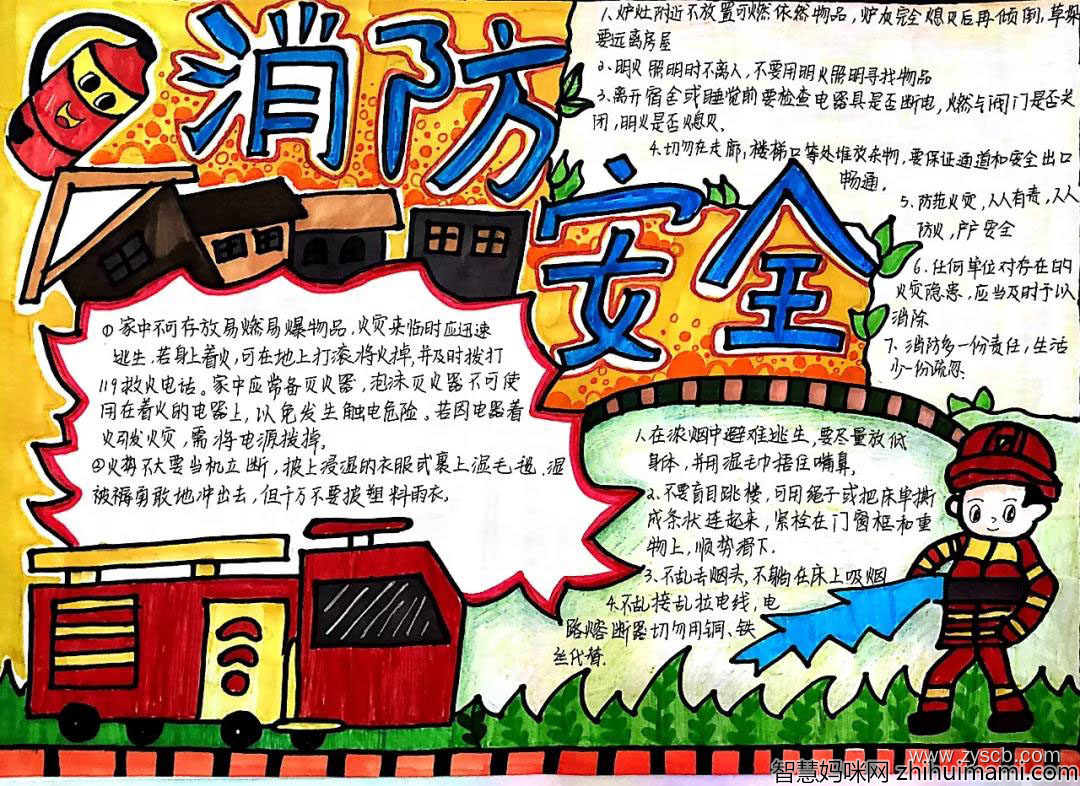 消防
安全
1、炉灶附近不放置可燃依然物品，炉灰完全熄灭后再倾倒，草垛
要远离房屋
2、明火照明时不离人，不要用明火照明寻找物品
3、离开宿舍或睡觉前要检查电器具是否断电，燃与阀门是否关
闭，明火是否熄灭。
4、切勿在走廊，楼梯口等处堆放杂物，要保证通道和安全出口
畅通。
5、防范火灾，人人有责，人人
防火，户户安全
6、任何单位对存在的
火灾隐患，应当及时予以
消除
7、消防多一份责任，生活
少一份疏忽.
① 家中不可存放易燃易爆物品，火灾来临时应迅速
逃生，若身上着火，可在地上打滚将火掉，并及时拨打
119救火电话。家中应常备灭火器，泡沫灭火器不可使
用在着火的电器上，以免发生触电危险。若因电器着
火引发火灾，需将电源拔掉。
②火势不大要当机立断，披上浸湿的衣服或裹上湿毛毯、湿
被褥勇敢地冲出去，但千万不要披塑料雨衣。
1、在浓烟中避难逃生，要尽量放低
身体，并用湿毛巾捂住嘴鼻。
2、不要盲目跳楼，可用绳子或把床单撕
成条状连起来，紧栓在门窗框和重
物上，顺势滑下.
3、不乱丢烟头，不躺在床上吸烟
4、不乱接乱拉电线，电
路熔断器切勿用铜、铁
丝代替.
www.zyscb.com
智慧妈咪网 zhihuimami.com